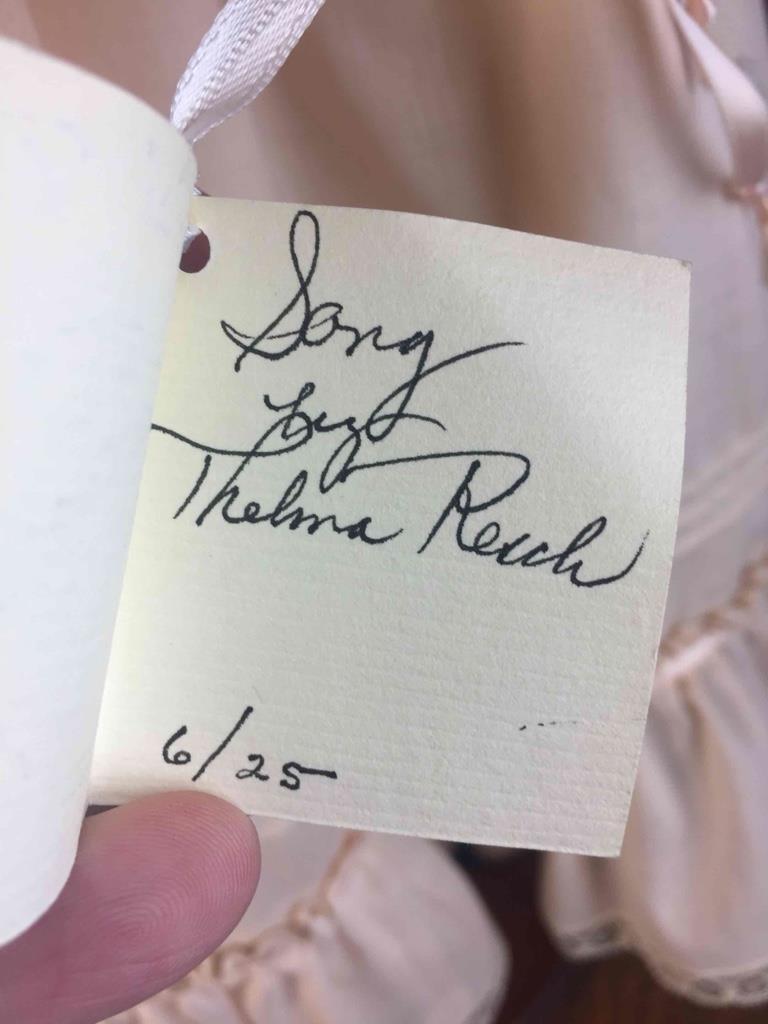 Song
by
Thelma Resch
6/25